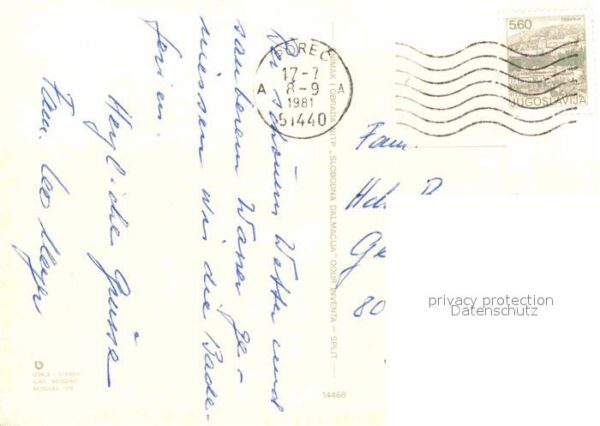 Bei schönem Wetter und
sauberem Wasser ge-
niessen wir die Bade-
ferien.
Herzliche Grüsse
Fam. Leo Meyer
POREČ
17-7
A 8-9 A
1981
51440
5.60
JUGOSLAVIJA
TISKP "SLOBODNA DALMACIJA" OOUR INVENTA – SPLIT
14468
Fam.
80
privacy protection
Datenschutz